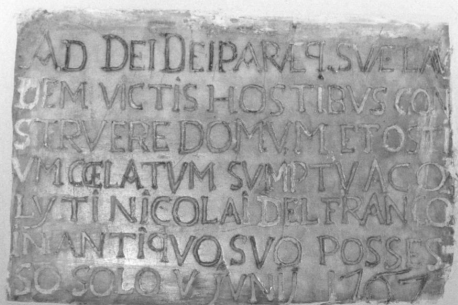 AD DEI DEIPARÆQ. SUE LAV
DEM VICTIS HOSTIBVS CON
STRVERE DOMVM ET OSTI
VM CŒLATVM SUMPTV AC
LYTI NICOLAI DEL FRANCO
IN ANTIQVO SVO POSSES
SO SOLO V JVNIJ 1707